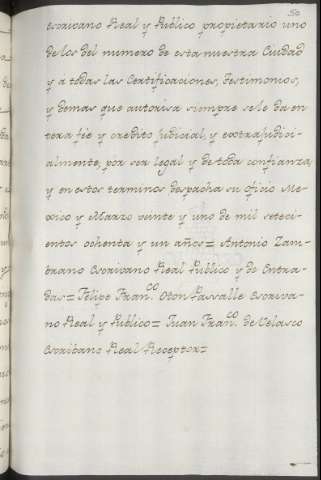 50
escrivano Real y Publico propietario uno
de los del numero de esta nuestra Ciudad
y a todas las Certificaciones, Testimonios,
y demas que autorisa siempre se le da en
tera fie y credito judicial, y extrajudici-
almente, por ser legal y de toda confianza,
y en estos terminos despacha su oficio Me-
xico y Marzo veinte y uno de mil seteci-
entos ochenta y un años= Antonio Zam-
brano Escrivano Real Publico y de Entra-
das= Felipe Fran.co Oton Passalle Escriva-
no Real y Publico= Juan Fran.co de Velasco
Escribano Real Receptor=